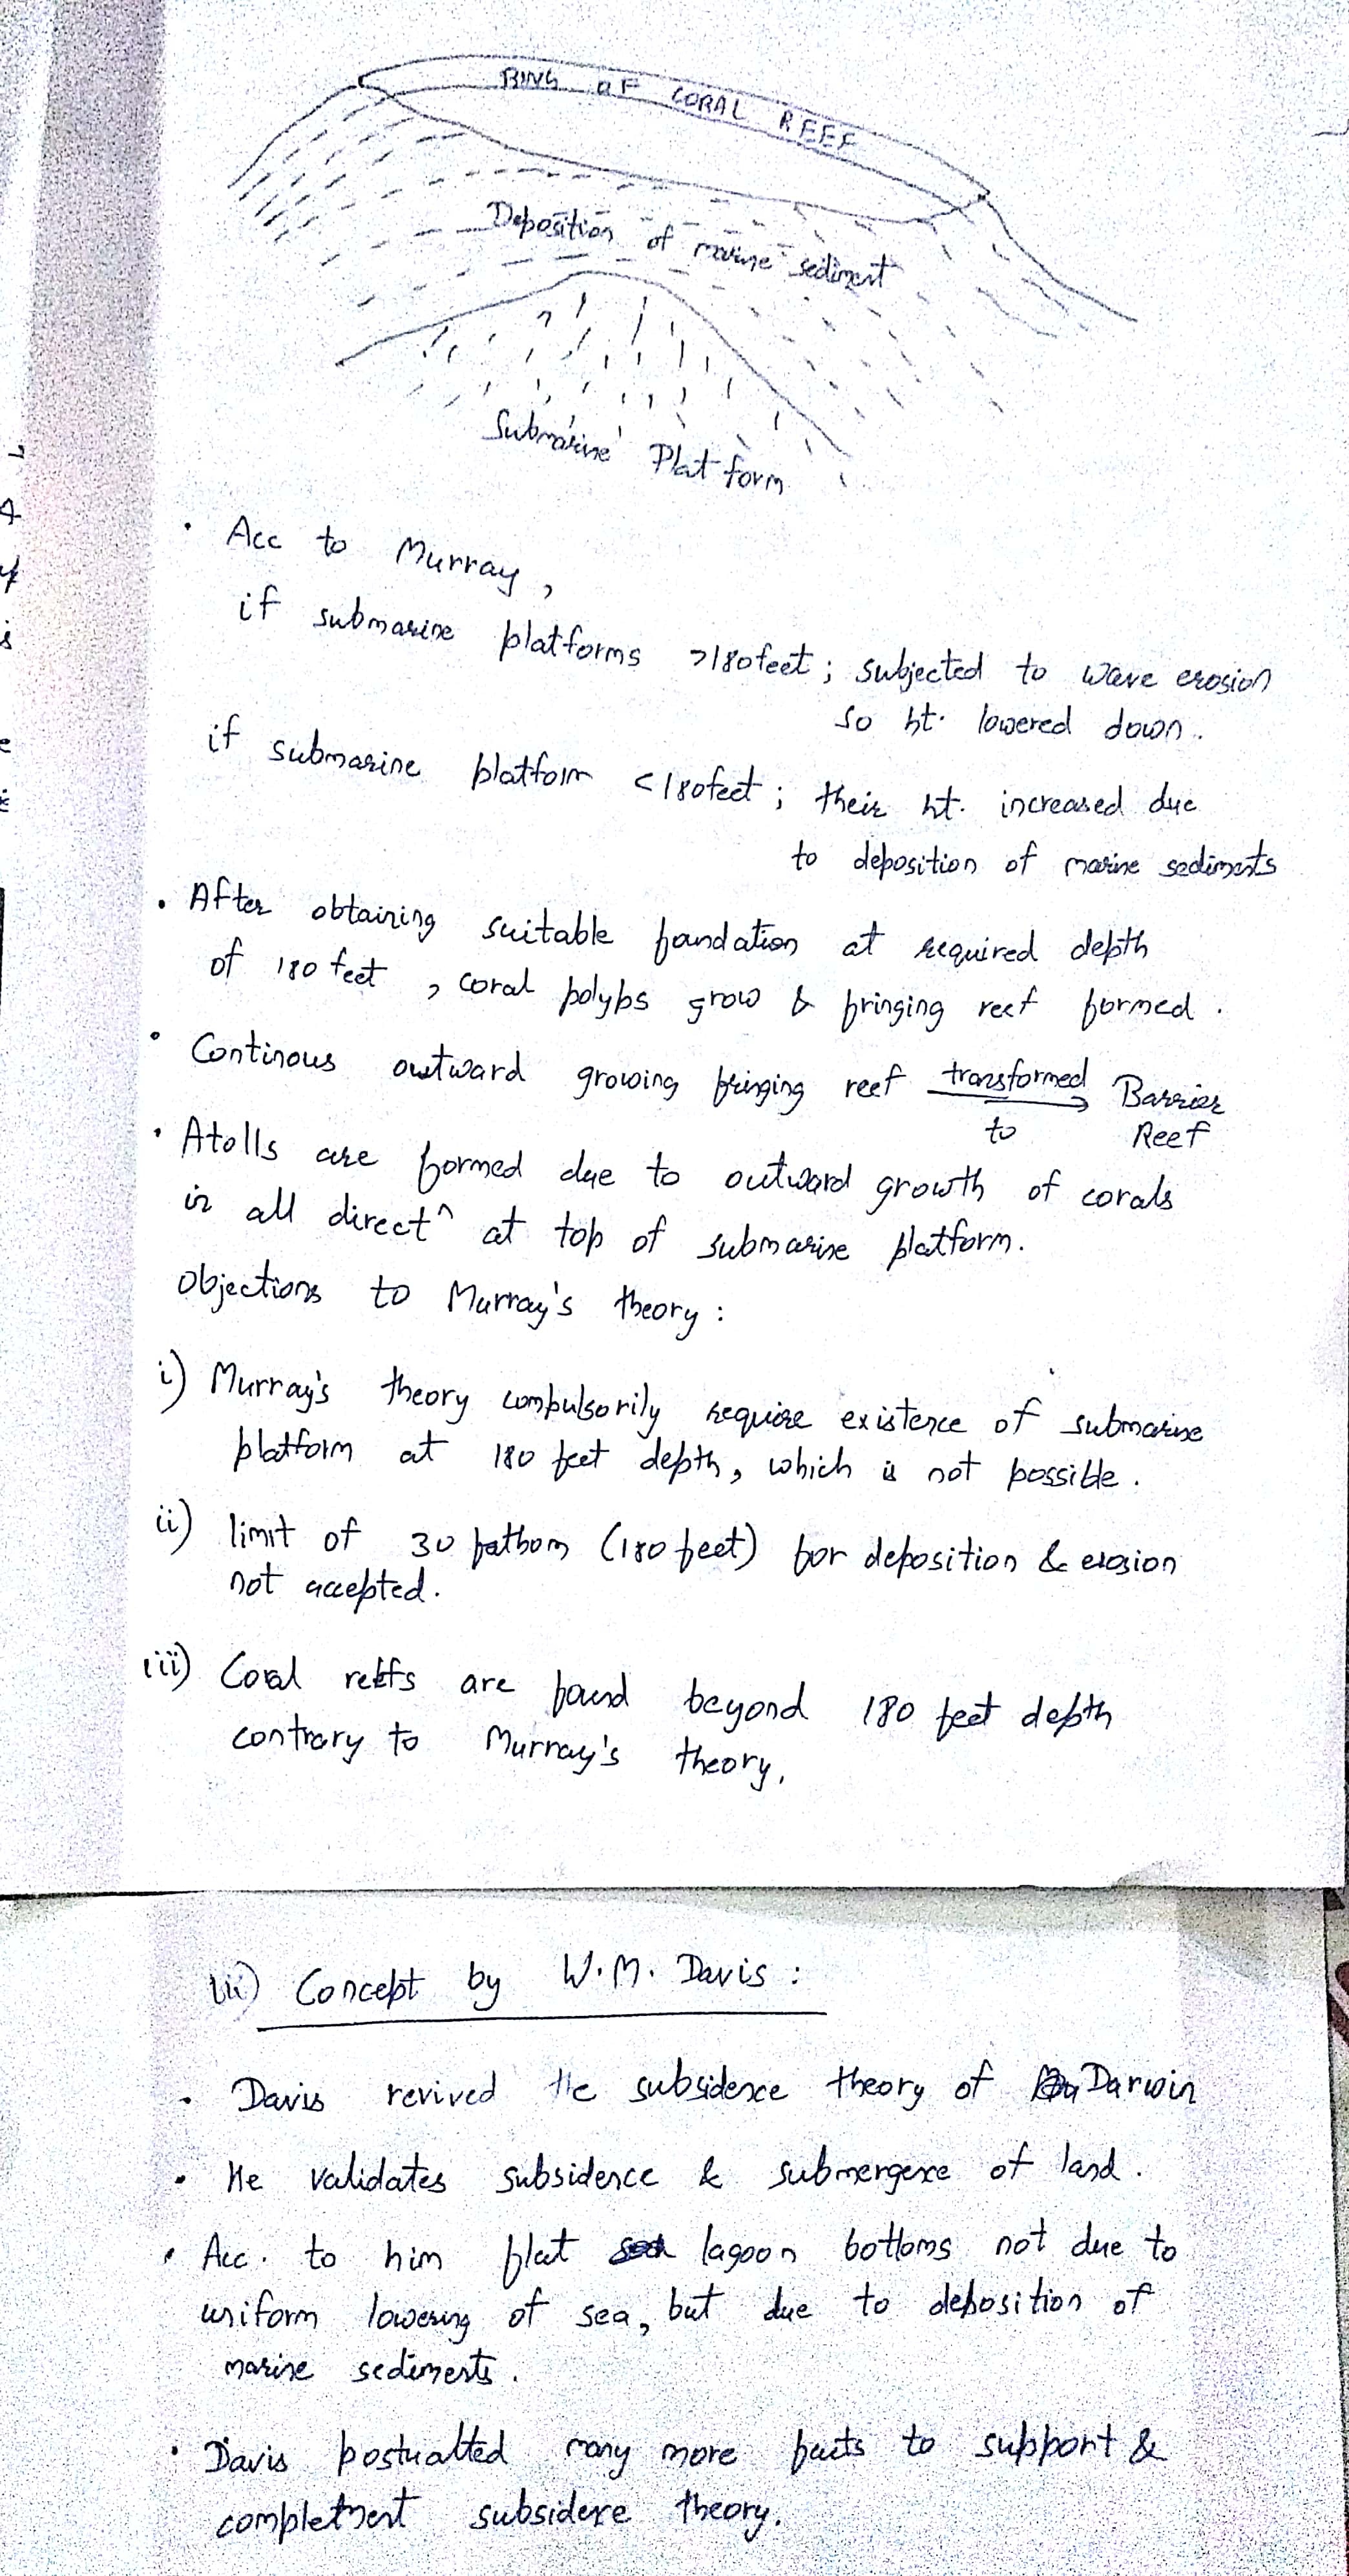 RING OF CORAL REEF
Deposition of marine sediment
Submarine Platform
• Acc to Murray,
if submarine platforms >180feet; subjected to wave erosion
so ht. lowered down.
if submarine platform <180feet; their ht. increased due
to deposition of marine sediments
• After obtaining suitable foundation at required depth
of 180 feet, coral polyps grow & fringing reef formed.
• Continous outward growing fringing reef transformed Barrier
to Reef
• Atolls are formed due to outward growth of corals
in all direct^n at top of submarine platform.
Objections to Murray's theory:
i) Murray's theory compulsorily require existence of submarine
platform at 180 feet depth, which is not possible.
ii) limit of 30 fathom (180 feet) for deposition & erosion
not accepted.
iii) Coral reefs are found beyond 180 feet depth
contrary to Murray's theory.
iii) Concept by W.M. Davis:
• Davis revived the subsidence theory of Darwin
• He validates subsidence & submergence of land.
• Acc. to him flat lagoon bottoms not due to
uniform lowering of sea, but due to deposition of
marine sediments.
• Davis postualted many more facts to support &
complement subsidence theory.